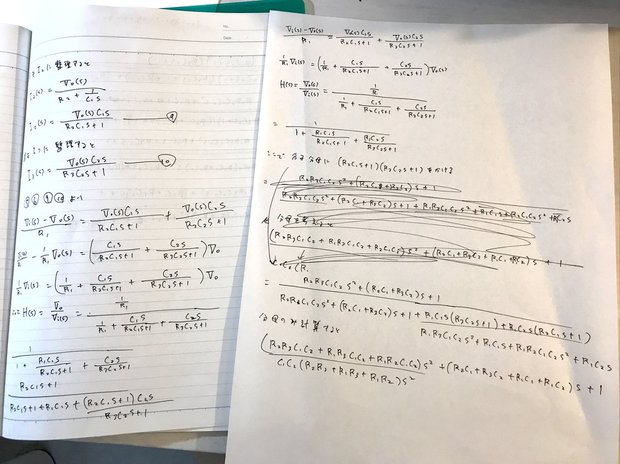 No.
Date
I₂に整理すると
I₂(s) = V₀(s) / (R₂ + 1/(C₁s))
I₂(s) = V₀(s)C₁s / (R₂C₁s+1) ——⑨
I₃に整理すると
I₃(s) = V₀(s)C₂s / (R₃C₂s+1) ——⑩
より
(Vi(s) - V₀(s)) / R₁ = V₀(s)C₁s / (R₂C₁s+1) + V₀(s)C₂s / (R₃C₂s+1)
- 1/R₁ V₀(s) = (C₁s / (R₂C₁s+1) + C₂s / (R₃C₂s+1)) V₀
1/R₁ Vi(s) = (1/R₁ + C₁s / (R₂C₁s+1) + C₂s / (R₃C₂s+1)) V₀
∴ H(s) = V₀ / Vi(s) = (1/R₁) / (1/R₁ + C₁s / (R₂C₁s+1) + C₂s / (R₃C₂s+1))
1 / (1 + R₁C₁s / (R₂C₁s+1) + C₂s / (R₃C₂s+1))
R₂C₁s+1
R₂C₁s+1+R₁C₁s + (R₂C₁s+1)C₂s / (R₃C₂s+1)
(Vi(s) - V₀(s)) / R₁ = V₀(s)C₁s / (R₂C₁s+1) + V₀(s)C₂s / (R₃C₂s+1)
1/R₁ Vi(s) = (1/R₁ + C₁s / (R₂C₁s+1) + C₂s / (R₃C₂s+1)) V₀(s)
H(s) = V₀(s) / Vi(s) = (1/R₁) / (1/R₁ + C₁s / (R₂C₁s+1) + C₂s / (R₃C₂s+1))
= 1 / (1 + R₁C₁s / (R₂C₁s+1) + R₁C₂s / (R₃C₂s+1))
ここで 分子分母に (R₂C₁s+1)(R₃C₂s+1) をかける
= (R₂R₃C₁C₂s² + (R₂C₁+R₃C₂)s + 1) / (R₂R₃C₁C₂s² + (R₂C₁+R₃C₂)s+1 + R₁R₃C₁C₂s² + R₁C₁s + R₁R₂C₁C₂s² + R₁C₂s)
分母を整理すると
(R₂R₃C₁C₂ + R₁R₃C₁C₂ + R₁R₂C₁C₂)s² + (R₂C₁+R₃C₂+R₁C₁+R₁C₂)s + 1
C₁C₂(R₂
= (R₂R₃C₁C₂s² + (R₂C₁+R₃C₂)s+1) / (R₂R₃C₁C₂s² + (R₂C₁+R₃C₂)s+1 + R₁C₁s(R₃C₂s+1) + R₁C₂s(R₂C₁s+1))
R₁R₃C₁C₂s² + R₁C₁s + R₁R₂C₁C₂s² + R₁C₂s
分母のみ計算すると
(R₂R₃C₁C₂ + R₁R₃C₁C₂ + R₁R₂C₁C₂)s² + (R₂C₁+R₃C₂+R₁C₁+R₁C₂)s + 1
C₁C₂(R₂R₃+R₁R₃+R₁R₂)s²